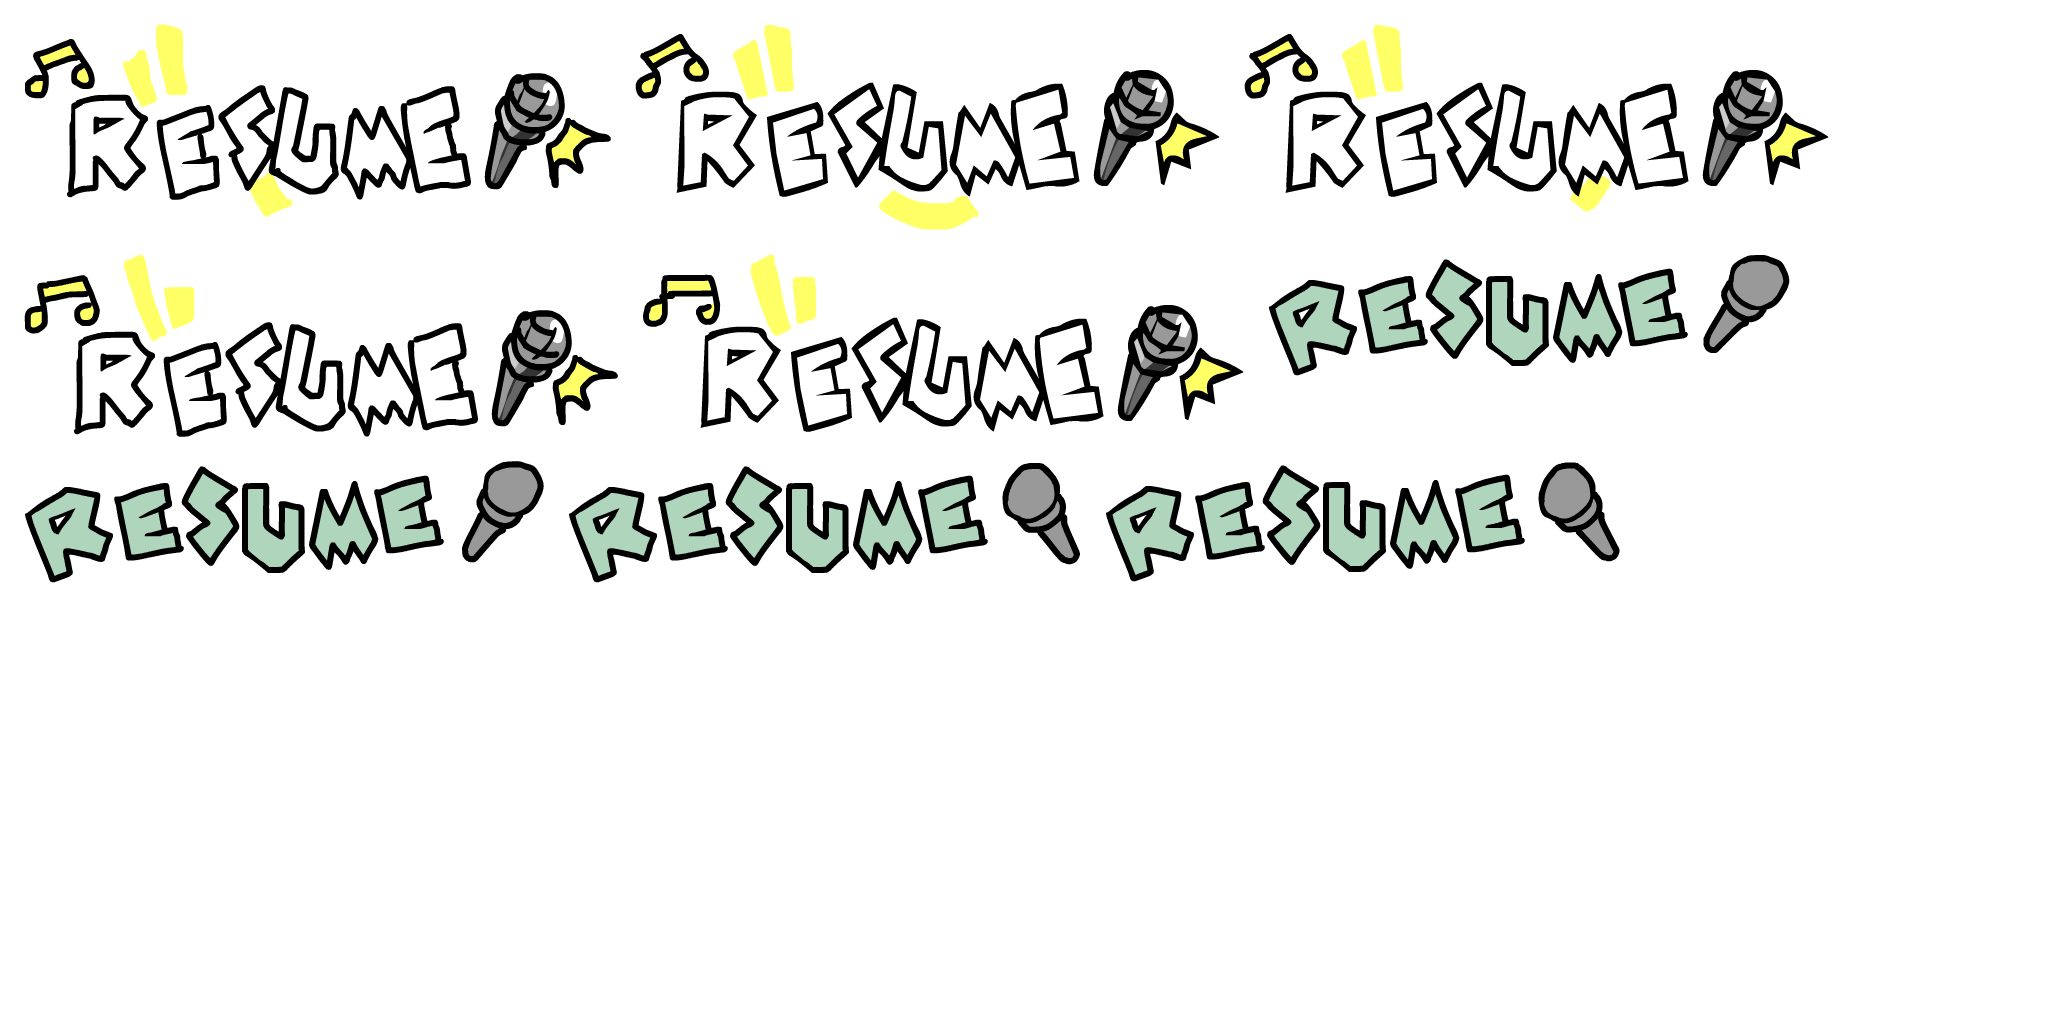 RESUME RESUME RESUME
RESUME RESUME RESUME
RESUME RESUME RESUME